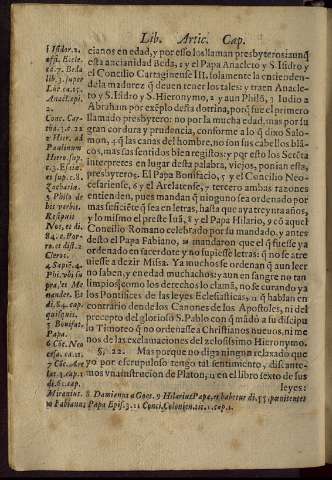 Lib. Artic. Cap.
cianos en edad, y por esso los llaman presbyteros: aunq̃
esta ancianidad Beda, 1 y el Papa Anacleto y S. Isidro y
el Concilio Cartaginense III. solamente la entienden
de la madurez q̃ deuen tener los tales: y traen Anacle
to y S. Isidro y S. Hieronymo, 2 y aun Philõ, 3 Iudio a
Abrahan por exẽplo desta dotrina, porq̃ fue el primero
llamado presbytero: no por la mucha edad, mas por su
gran cordura y prudencia, conforme a lo q̃ dixo Salo-
mon, 4 q̃ las canas del hombre, no son sus cabellos blã
cos, mas sus sentidos bien regidos: y por esto los Setẽta
interpretes en lugar desta palabra, viejos, ponian esta,
presbyteros. El Papa Bonifacio, 5 y el Concilio Neo-
cesariense, 6 y el Arelatense, 7 tercero ambas razones
entienden, pues mandan q̃ ninguno sea ordenado por
mas suficiẽte q̃ sea en letras, hasta que aya treynta años,
y lo mismo el preste Iuã, 8 y el Papa Hilario, 9 cõ aquel
Concilio Romano celebrado por su mandado, y antes
desto el Papa Fabiano, 10 mandaron que el q̃ fuesse ya
ordenado en sacerdote y no supiesse letras: q̃ no se atre
uiesse a dezir Missa. Ya muchos se ordenan q̃ aun leer
no saben, y en edad muchachos: y aun en sangre no tan
limpios como los derechos lo clamã, no se curando ya
los Pontifices de las leyes Eclesiasticas, 11 q̃ hablan en
contrario dende los Canones de los Apostoles, ni del
precepto del glorioso S. Pablo con q̃ mãdo a su discipu
lo Timoteo q̃ no ordenasse a Christianos nueuos, ni me
nos de las exclamaciones del zelosissimo Hieronymo.
§. 22. Mas porque no diga ningun relaxado que
yo por escrupuloso tengo tal sentimiento, dissante-
mos vna instrucion de Platon, 12 en el libro sexto de sus
leyes:
1 Isidor. 2.
offi. Eccle.
ca. 7. Beda
lib. 3. super
Luc. ca. 15.
Anacl. epi.
2.
Conc. Car-
tha. 3. c. 22
2 Hier. ad
Paulinum
Hiero. sup.
c. 3. Esaiæ
et sup. c. 8.
Zacharia.
3 Philo de
his verbis.
Resipuit
Noe, et di.
84. c. Por-
ro. et dist. 2
Cleros.
4 Sapiẽ. 4.
Philo, vbi su
pra, et Me
nander. Et
d. 84. cap.
quisquis.
5 Bonifat.
Papa.
6 Cõc. Neo
cesa. ca. 11.
7 Cõc. Are
lat. 3. cap. 1
di. 61. cap.
Mirantur. 8 Damianus a Goes. 9 Hilarius Papa, et habetur di. 55. pœnitentes
10 Fabianus Papa Epis. 3. 11 Conci. Colonien. tit. 1. cap. 1.